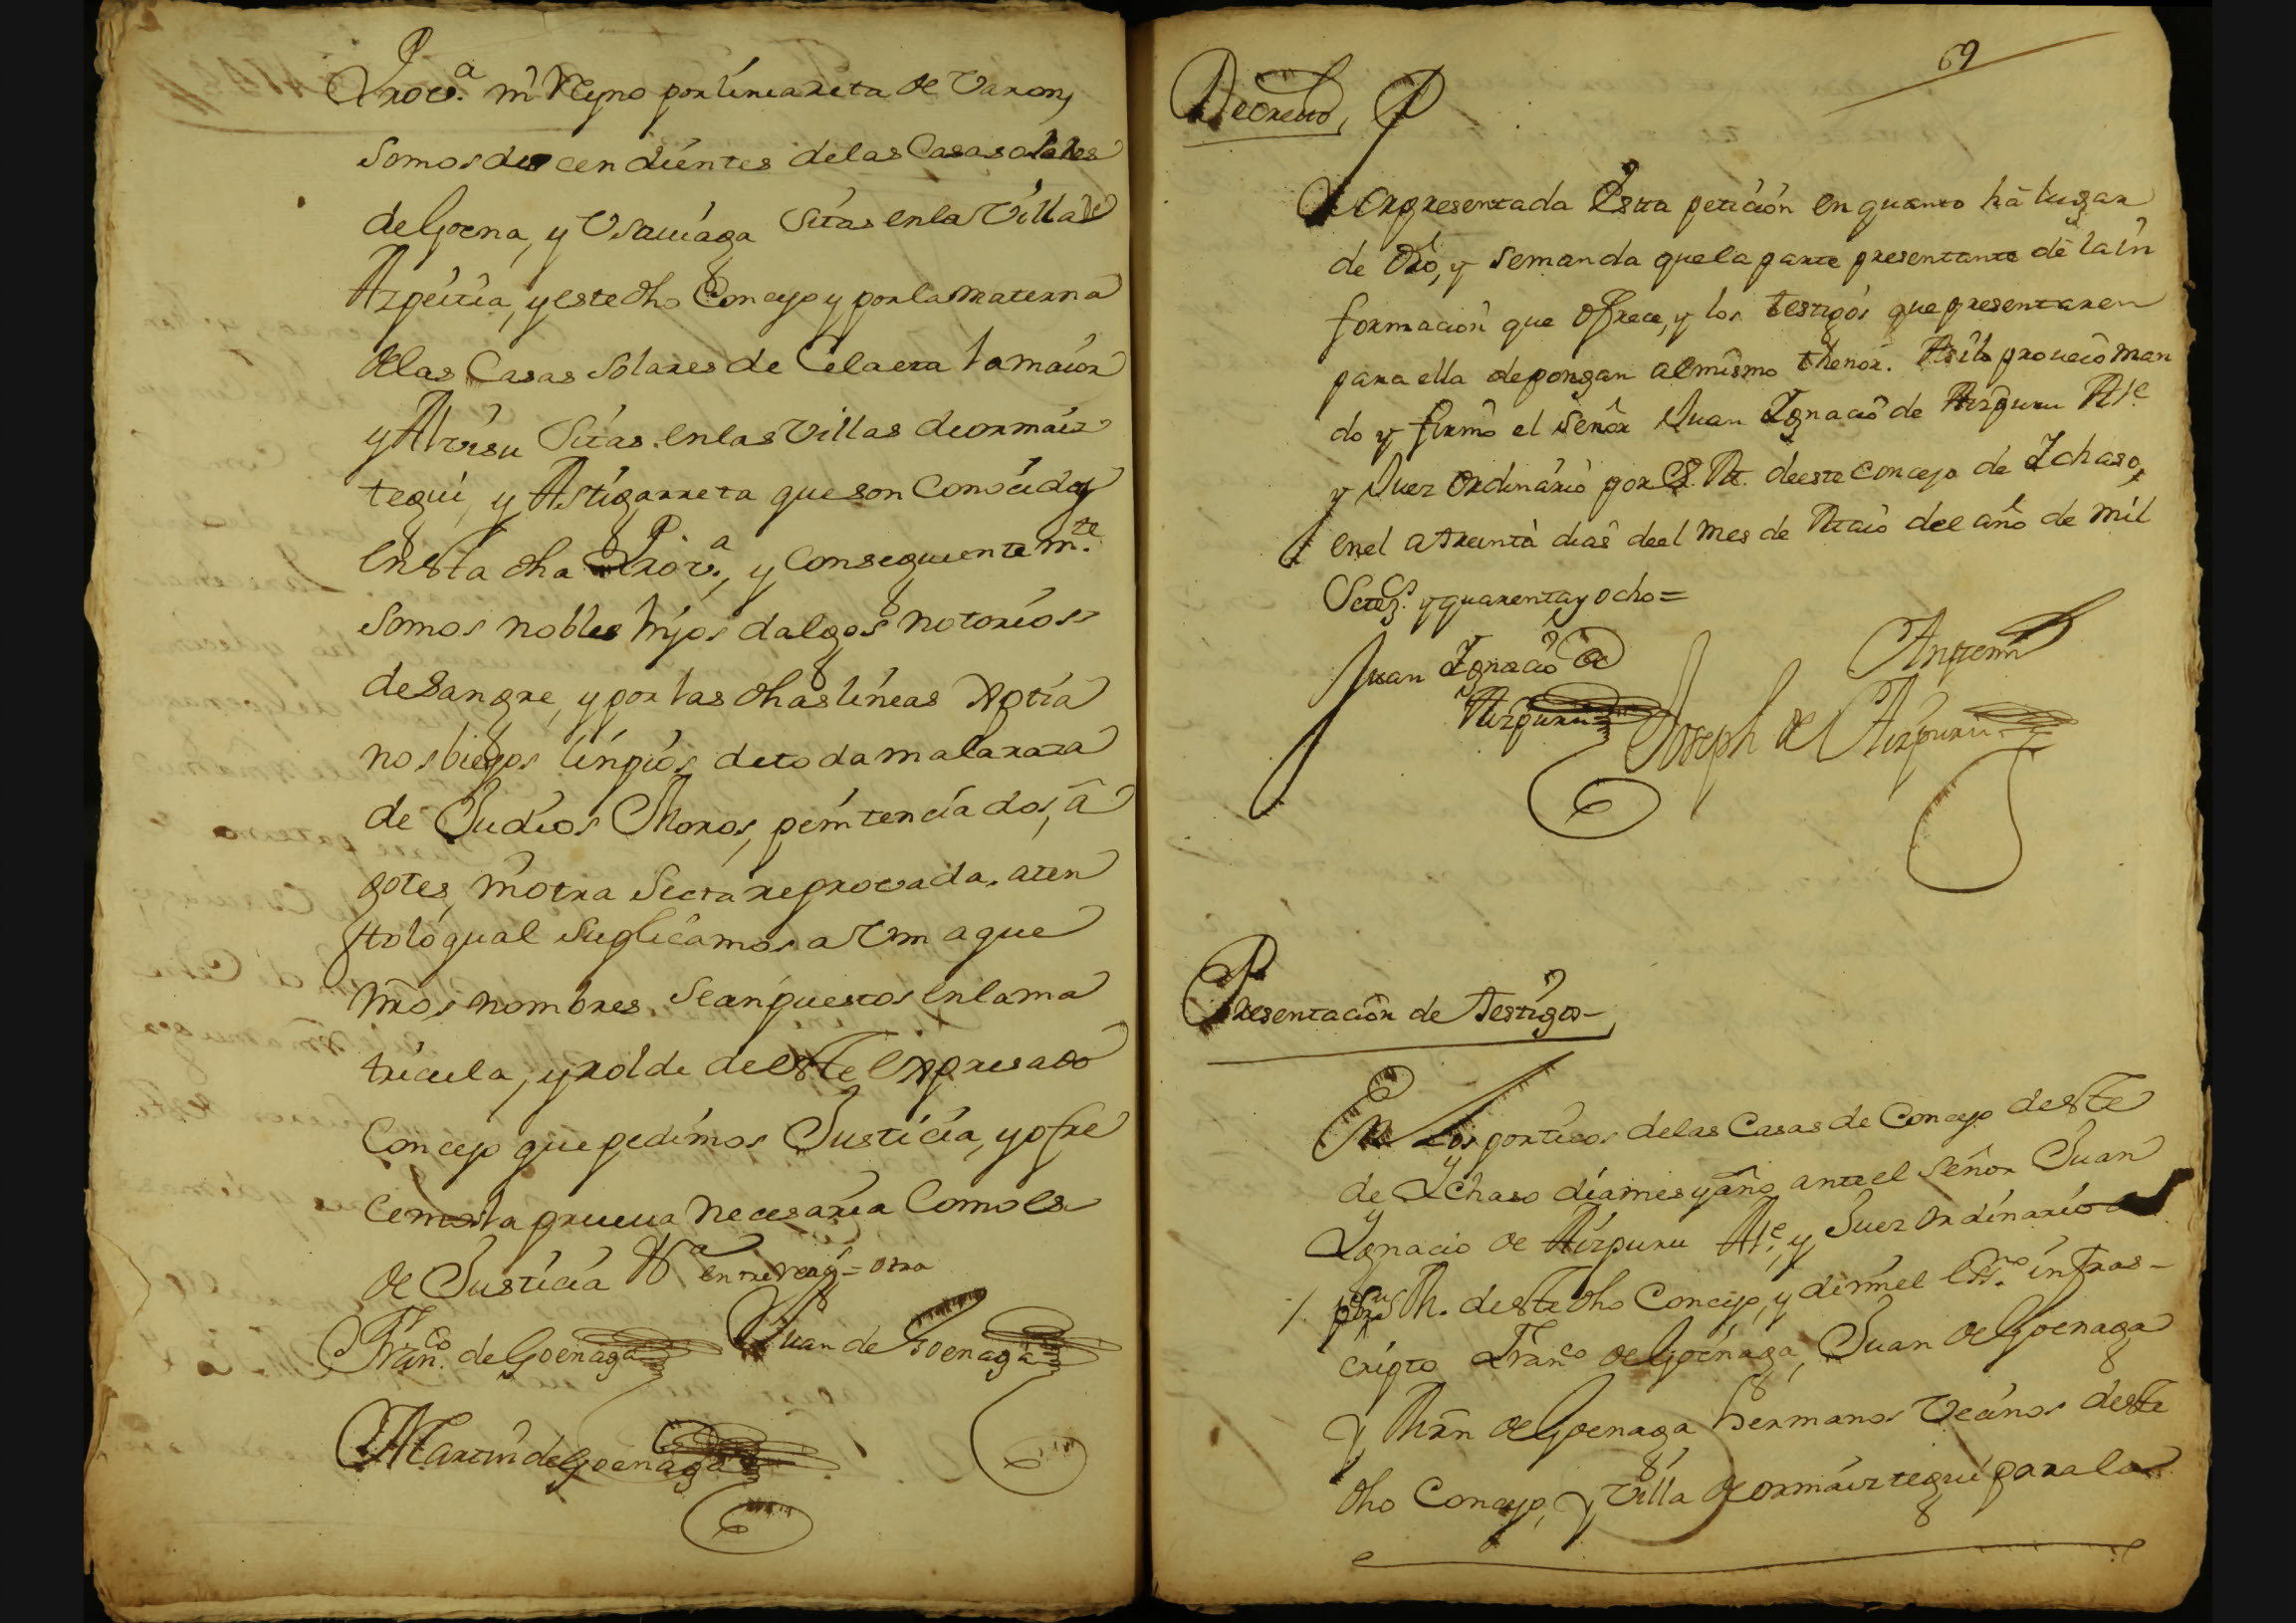 Prov.ª ni Reyno por línea reta de Varon,
somos descendíentes delas Casas solares
de Goena, y Vsauiaga sitas enla Villa de
Azpeitia, y este dho Concejo y por la materna
de las Casas Solares de Celaeta la maior
y Alvisu Sitas en las Villas de ormaiz
tegui, y Astigarreta que son Conocidas
en esta dha Prov.ª, y Conseguientem.te
Somos nobles hijos dalgos notorios
de Sangre, y por las dhas líneas xptia
nos biejos linpios de toda mala raza
de Judios Moros, penitenciados, â
gotes, ni otra Secta reprovada. aten
to lo qual Suplicamos a Vm a que
nr̃os nombres Sean puestos en la ma
tricula, y rolde de este expresado
Concejo que pedimos Justicia, y ofre
cemos la prueua necesaria Como es
de Justicia &ª entre reng.s = otra
Fran.co de Goenaga Juan de Goenaga
Martin de Goenaga
69
Decreto,
Por presentada Esta peticion en quanto hâ lugar
de dro, y se manda que la parte presentante dê la in
formacion que ofrece, y los testigos que presentaren
para ella depongan al mismo thenor. Asi lo proueiô man
do y firmô el Señor Juan Ignacio de Aizpuru Al.e
y Juez ordinario por S. M. de este concejo de Ichaso,
en el a treinta dias de el mes de Maio del año de mil
Setez.s y quarenta y ocho =
Juan Ignacio de
Aizpuru
Ante mi
Joseph de Aizpuru
Presentación de Testigos
En Los porticos de las Casas de Concejo de este
de Ychaso dia mes y año ante el Señor Juan
Ygnacio de Aizpuru Al.e y Juez ordinario
por su M. de este dho Concejo, y de mi el Ess.no infras-
cripto Fran.co de Goenaga, Juan de Goenaga
y Mrn de Goenaga hermanos Vecinos de este
dho Concejo, y Villa de ormaiztegui para la